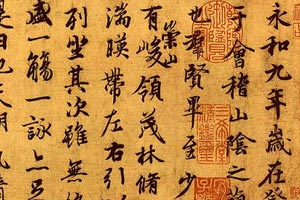 永和九年歲在癸
于會稽山陰之蘭
也群賢畢至少
有崇山峻領茂林脩
湍暎帶左右引
列坐其次雖無
盛一觴一詠亦足
是日也天朗氣清